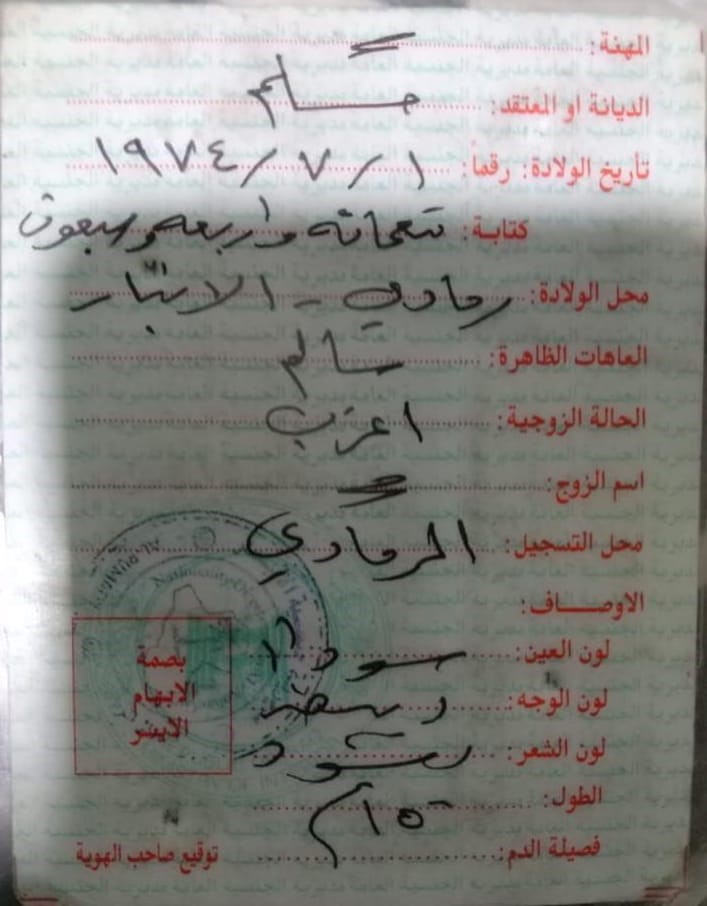 المهنة:
الديانة او المعتقد: مسلم
تأريخ الولادة: رقماً: ١/٧/١٩٧٤
كتابة: تسعمائه واربعه وسبعون
محل الولادة: رمادي - الانبار
العاهات الظاهرة: سالم
الحالة الزوجية: اعزب
اسم الزوج:
محل التسجيل: الرمادي
الاوصـــاف:
لون العين: سوداء
لون الوجه:
لون الشعر: اسود
الطول:
فصيلة الدم:
بصمة
الابهام
الايسر
توقيع صاحب الهوية